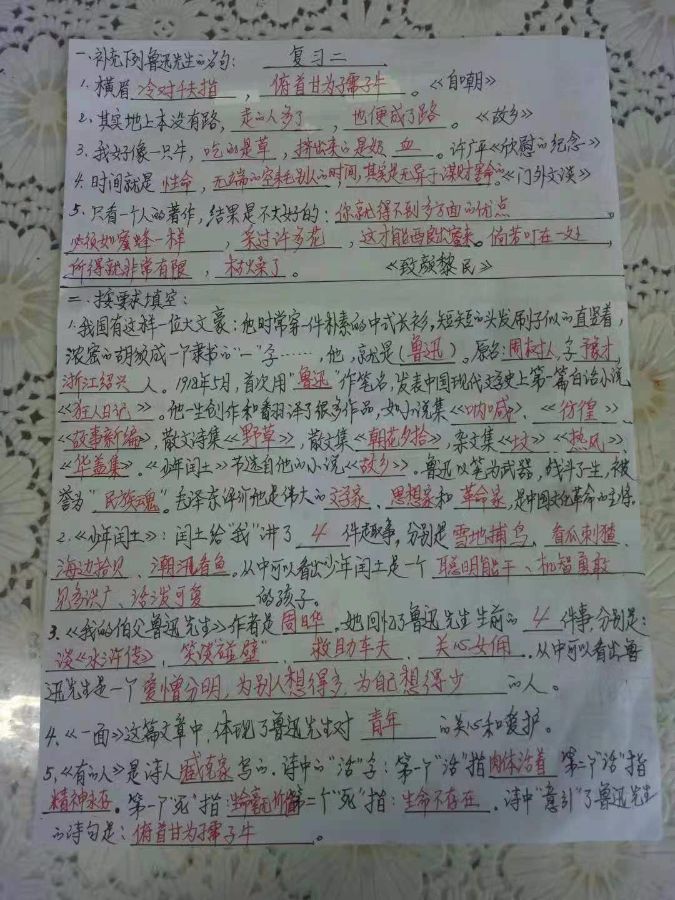 复习二
一、补充下列鲁迅先生的名句:
1. 横眉冷对千夫指,俯首甘为孺子牛。《自嘲》
2. 其实地上本没有路,走的人多了,也便成了路。《故乡》
3. 我好像一只牛,吃的是草,挤出来的是奶、血。许广平《欣慰的纪念》
4. 时间就是性命,无端的空耗别人的时间,其实是无异于谋财害命的《门外文谈》
5. 只看一个人的著作,结果是不大好的:你就得不到多方面的优点。
必须如蜜蜂一样,采过许多花,这才能酿出蜜来。倘若叮在一处,
所得就非常有限,枯燥了。《致颜黎民》
二、按要求填空:
1. 我国有这样一位大文豪:他时常穿一件朴素的中式长衫,短短的头发刷子似的直竖着,
浓密的胡须成一个隶书的“一”字……,他,就是(鲁迅)。原名:周树人,字豫才,
浙江绍兴人。1918年5月,首次用“鲁迅”作笔名,发表中国现代文学史上第一篇白话小说
《狂人日记》。他一生创作和翻译了很多作品,如小说集《呐喊》、《彷徨》
《故事新编》,散文诗集《野草》,散文集《朝花夕拾》,杂文集《坟》《热风》
《华盖集》。《少年闰土》节选自他的小说《故乡》。鲁迅以笔为武器,战斗了一生,被
誉为“民族魂”。毛泽东评价他是伟大的文学家、思想家和革命家,是中国文化革命的主将。
2.《少年闰土》:闰土给“我”讲了4件趣事,分别是雪地捕鸟、看瓜刺猹、
海边拾贝、潮汛看鱼。从中可以看出少年闰土是一个聪明能干、机智勇敢
见多识广、活泼可爱的孩子。
3.《我的伯父鲁迅先生》作者是周晔。她回忆了鲁迅先生生前的4件事分别是:
谈《水浒传》、笑谈“碰壁”、救助车夫、关心女佣。从中可以看出鲁
迅先生是一个爱憎分明,为别人想得多,为自己想得少的人。
4.《一面》这篇文章中,体现了鲁迅先生对青年的关心和爱护。
5.《有的人》是诗人臧克家写的。诗中的“活”字:第一个“活”指肉体活着 第二个“活”指
精神永存。第一个“死”指:第二个“死”指:生命不存在。诗中“意引”了鲁迅先生
的诗句是:俯首甘为孺子牛。